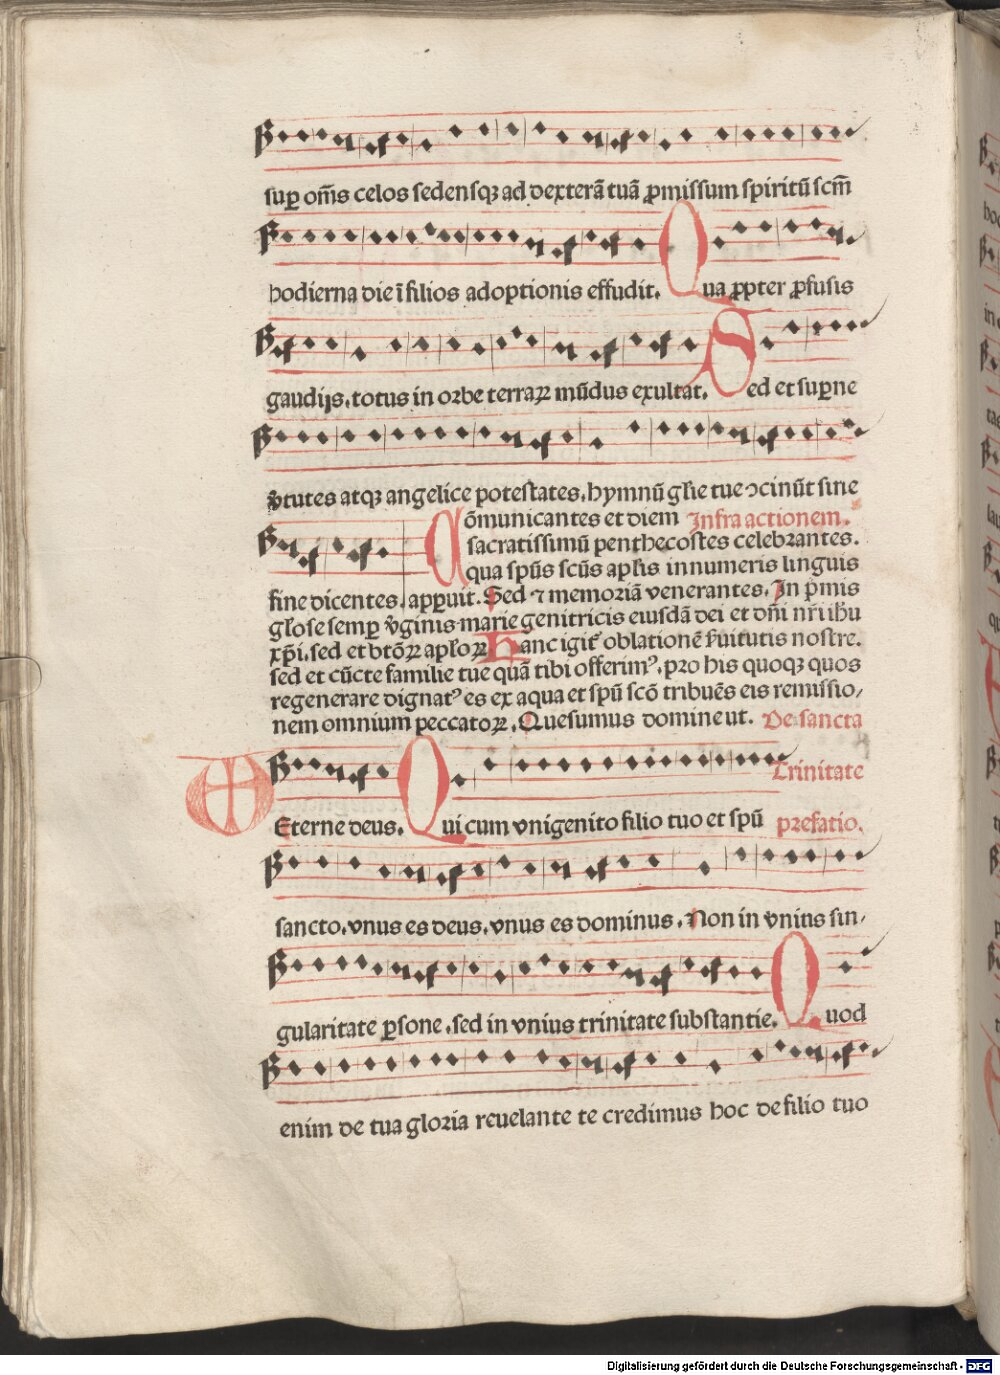 sup om̅s celos sedensqꝫ ad dexterā tuā ꝓmissum spiritū scm̅
hodierna die ī filios adoptionis effudit. Qua ꝓpter ꝓfusis
gaudijs. totus in orbe terraꝝ mūdus exultat. Sed et supne
v̓tutes atqꝫ angelice potestates. hymnū gl̅ie tue ꝯcinūt sine
Cōmunicantes et diem Infra actionem.
sacratissimū penthecostes celebrantes.
qua spūs scūs apl̅is innumeris linguis
fine dicentes. apꝑuit. Sed ⁊ memoriā venerantes. In pͥmis
gl̅ose semꝑ v̓ginis marie genitricis eiusdā dei et dn̅i nr̅i ihu̅
xp̅i. sed et bt̅oꝝ apl̅oꝝ Hanc igit̉ oblationē ẜuitutis nostre.
sed et cūcte familie tue quā tibi offerimꝰ. pro his quoqꝫ quos
regenerare dignatꝰ es ex aqua et spū scō tribuēs eis remissio⸗
nem omnium peccatoꝝ. Quesumus domine ut. De sancta
Trinitate
Eterne deus. Qui cum vnigenito filio tuo et spū prefatio.
sancto. vnus es deus. vnus es dominus. Non in vnius sin⸗
gularitate ꝑsone. sed in vnius trinitate substantie. Quod
enim de tua gloria reuelante te credimus hoc de filio tuo
Digitalisierung gefördert durch die Deutsche Forschungsgemeinschaft - DFG